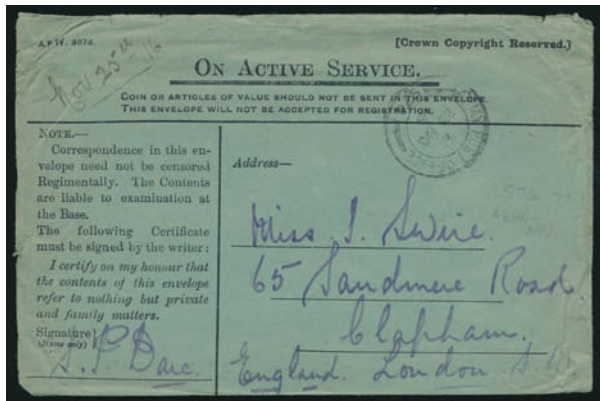 A.F.W. 3078.
[Crown Copyright Reserved.]
Nov 25th 16
ON ACTIVE SERVICE.
COIN OR ARTICLES OF VALUE SHOULD NOT BE SENT IN THIS ENVELOPE.
THIS ENVELOPE WILL NOT BE ACCEPTED FOR REGISTRATION.
NOTE.—
Correspondence in this en-
velope need not be censored
Regimentally. The Contents
are liable to examination at
the Base.
The following Certificate
must be signed by the writer:
I certify on my honour that
the contents of this envelope
refer to nothing but private
and family matters.
Signature }
(Name only)
Address—
Miss I. Swire.
65 Sandmere Road
Clapham.
England. London S.W.